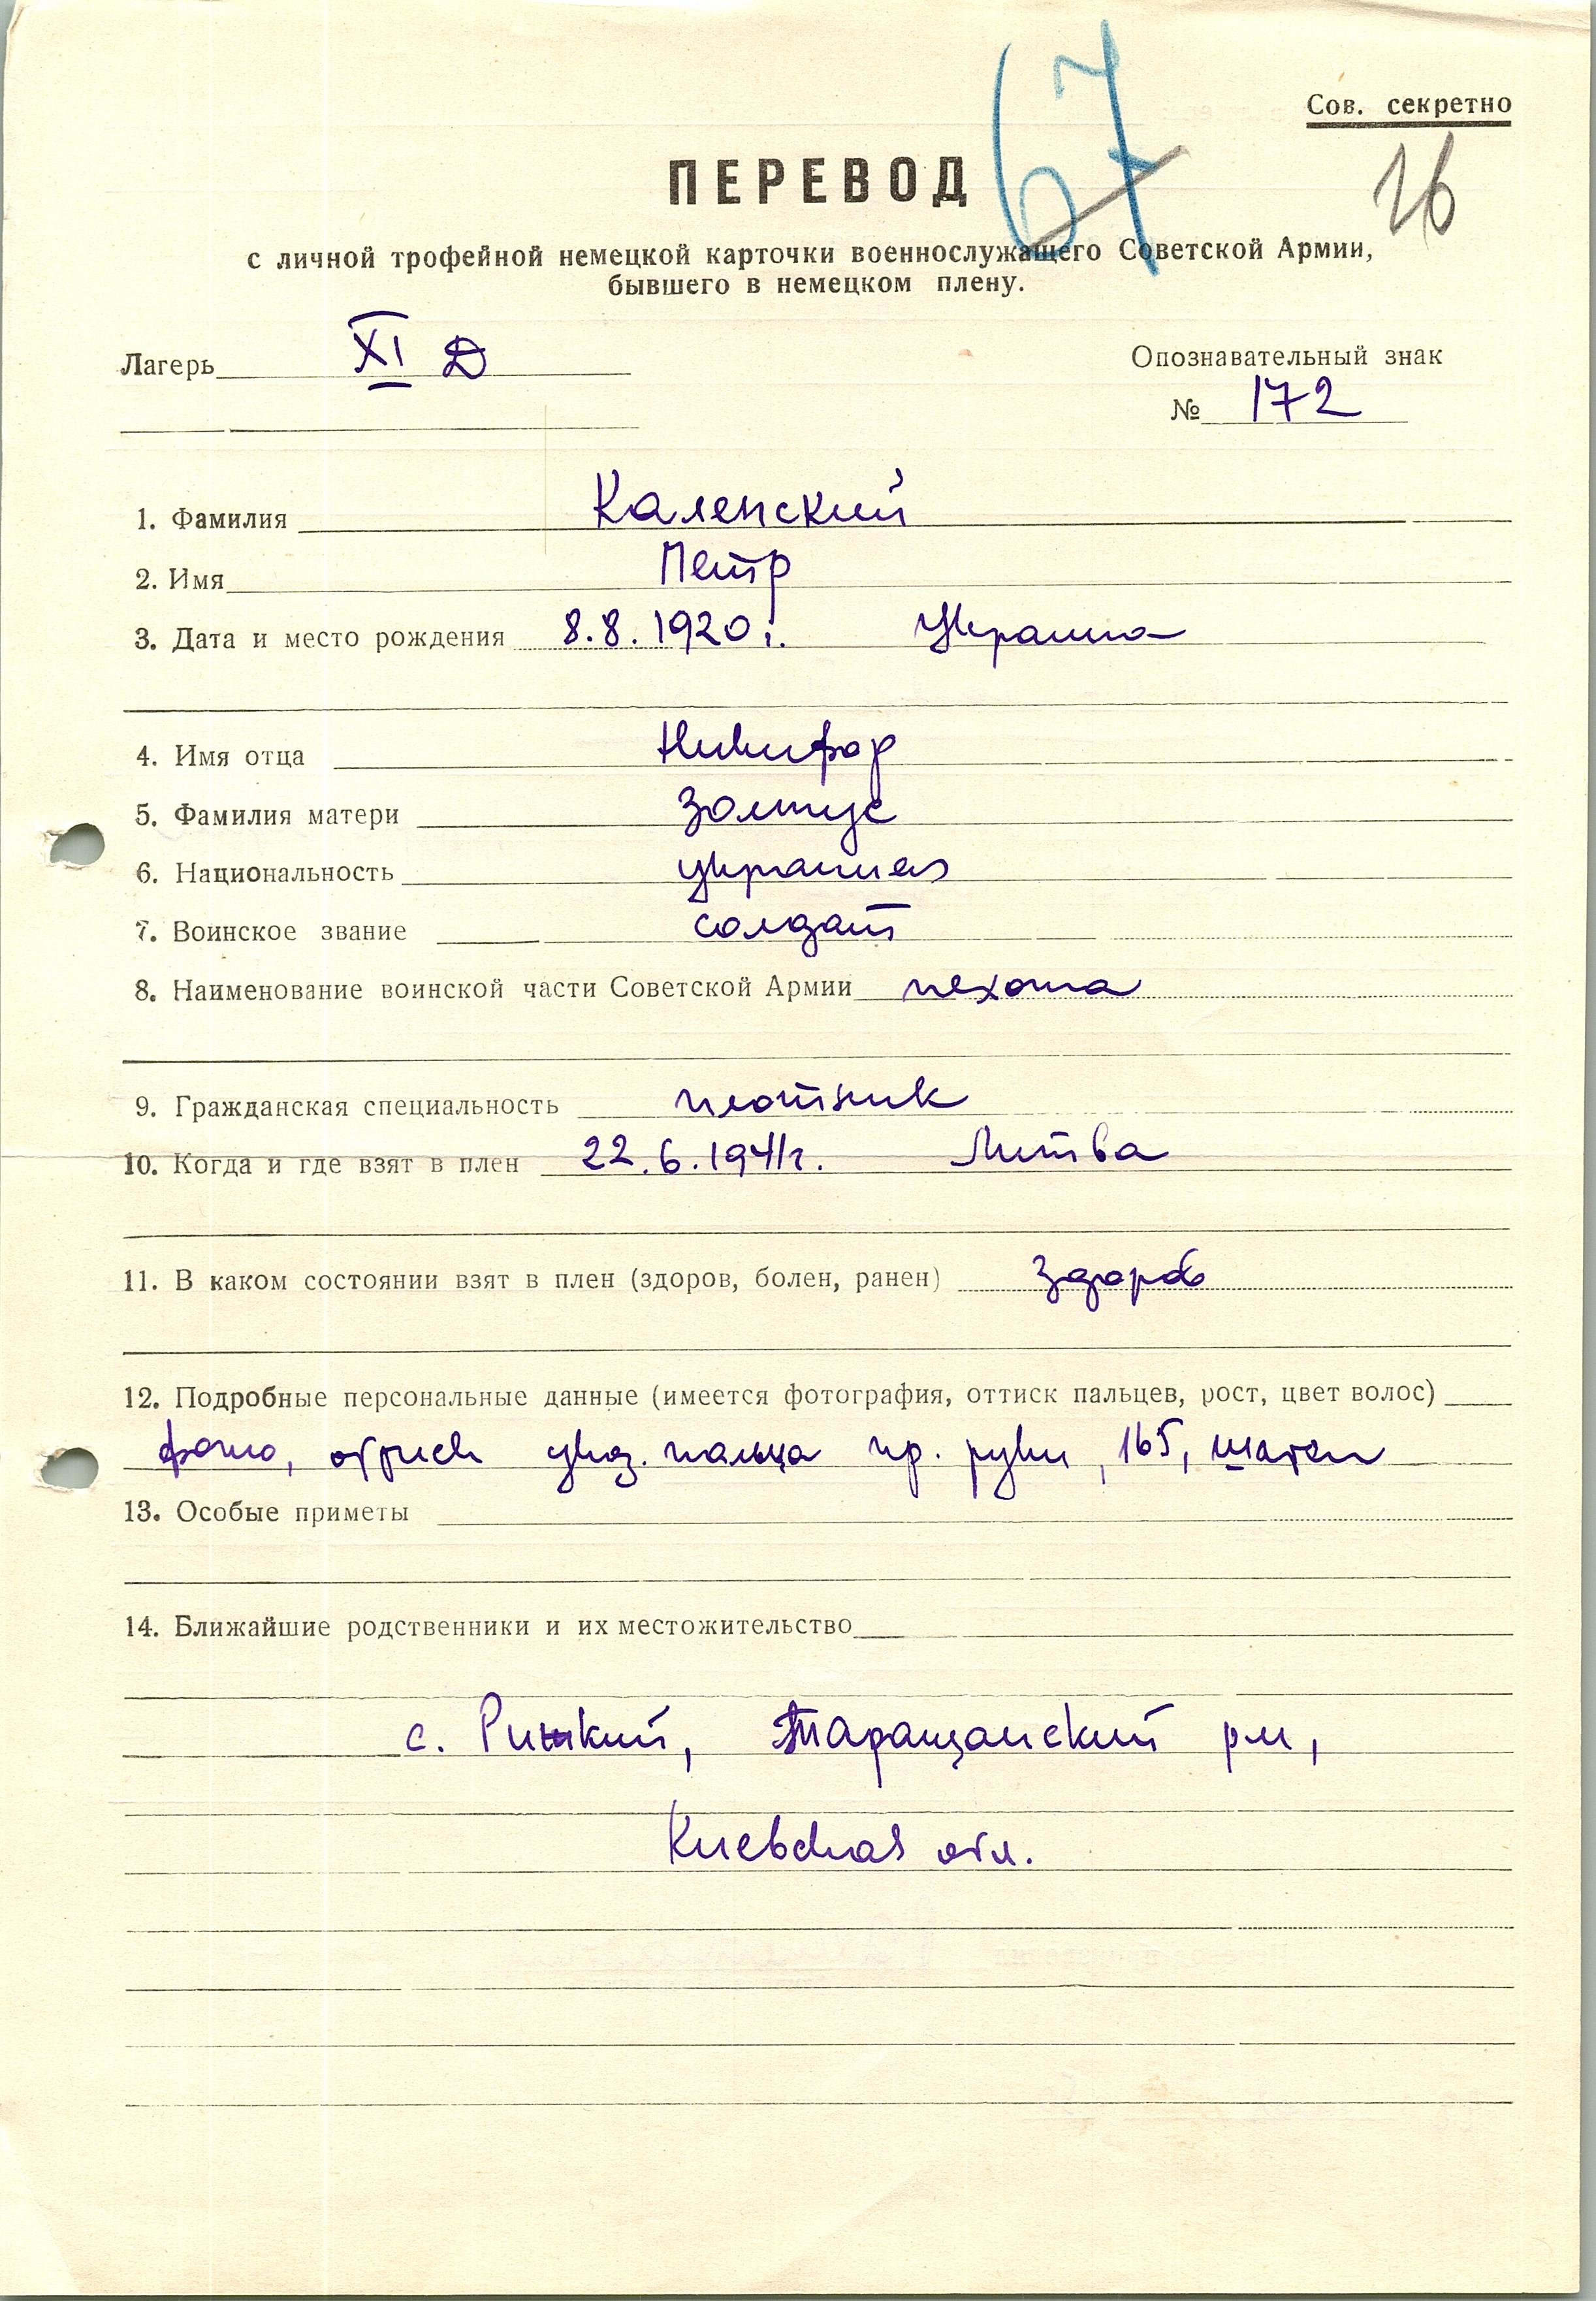 67
Сов. секретно
26
ПЕРЕВОД
с личной трофейной немецкой карточки военнослужащего Советской Армии,
бывшего в немецком плену.
Лагерь XI D
Опознавательный знак
№ 172
1. Фамилия Каленский
2. Имя Петр
3. Дата и место рождения 8.8.1920 г. Украина
4. Имя отца Никифор
5. Фамилия матери
6. Национальность украинец
7. Воинское звание солдат
8. Наименование воинской части Советской Армии пехота
9. Гражданская специальность плотник
10. Когда и где взят в плен 22.6.1941г. Литва
11. В каком состоянии взят в плен (здоров, болен, ранен) здоров
12. Подробные персональные данные (имеется фотография, оттиск пальцев, рост, цвет волос)
фото, оттиск указ. пальца пр. руки, 165, шатен
13. Особые приметы
14. Ближайшие родственники и их местожительство
с. Таращанский рн,
Киевская обл.